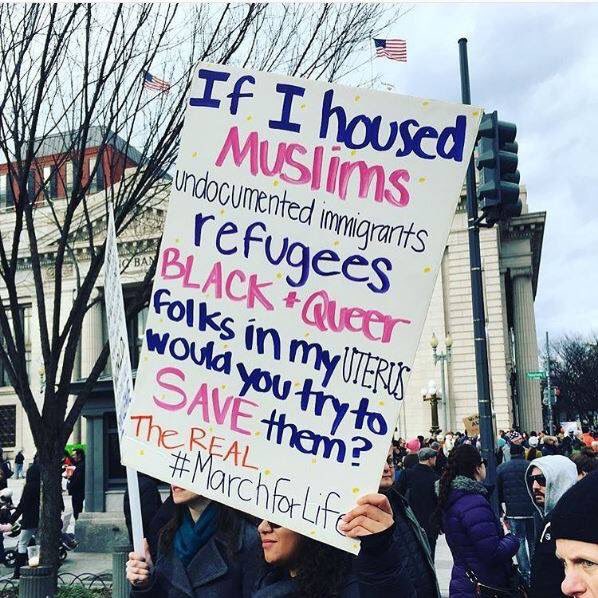 If I housed
MUSlims
undocumented immigrants
refugees
BLACK + Queer
folks in my UTERUS
would you try to
SAVE them?
The REAL
#MarchForLife
BAN